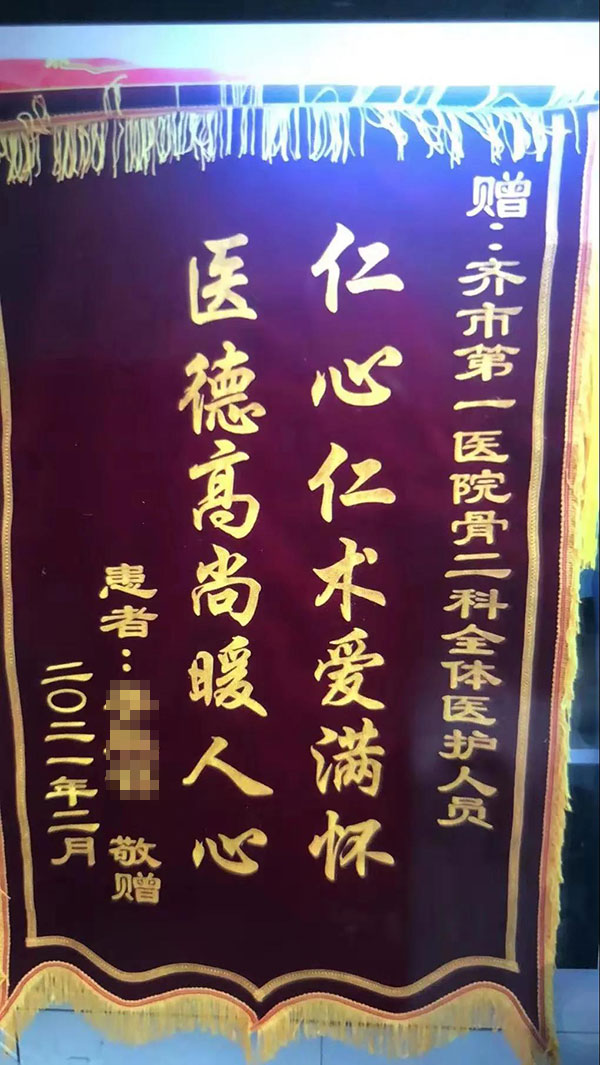 赠：齐市第一医院骨二科全体医护人员
仁心仁术爱满怀
医德高尚暖人心
患者： 敬赠
二〇二一年二月